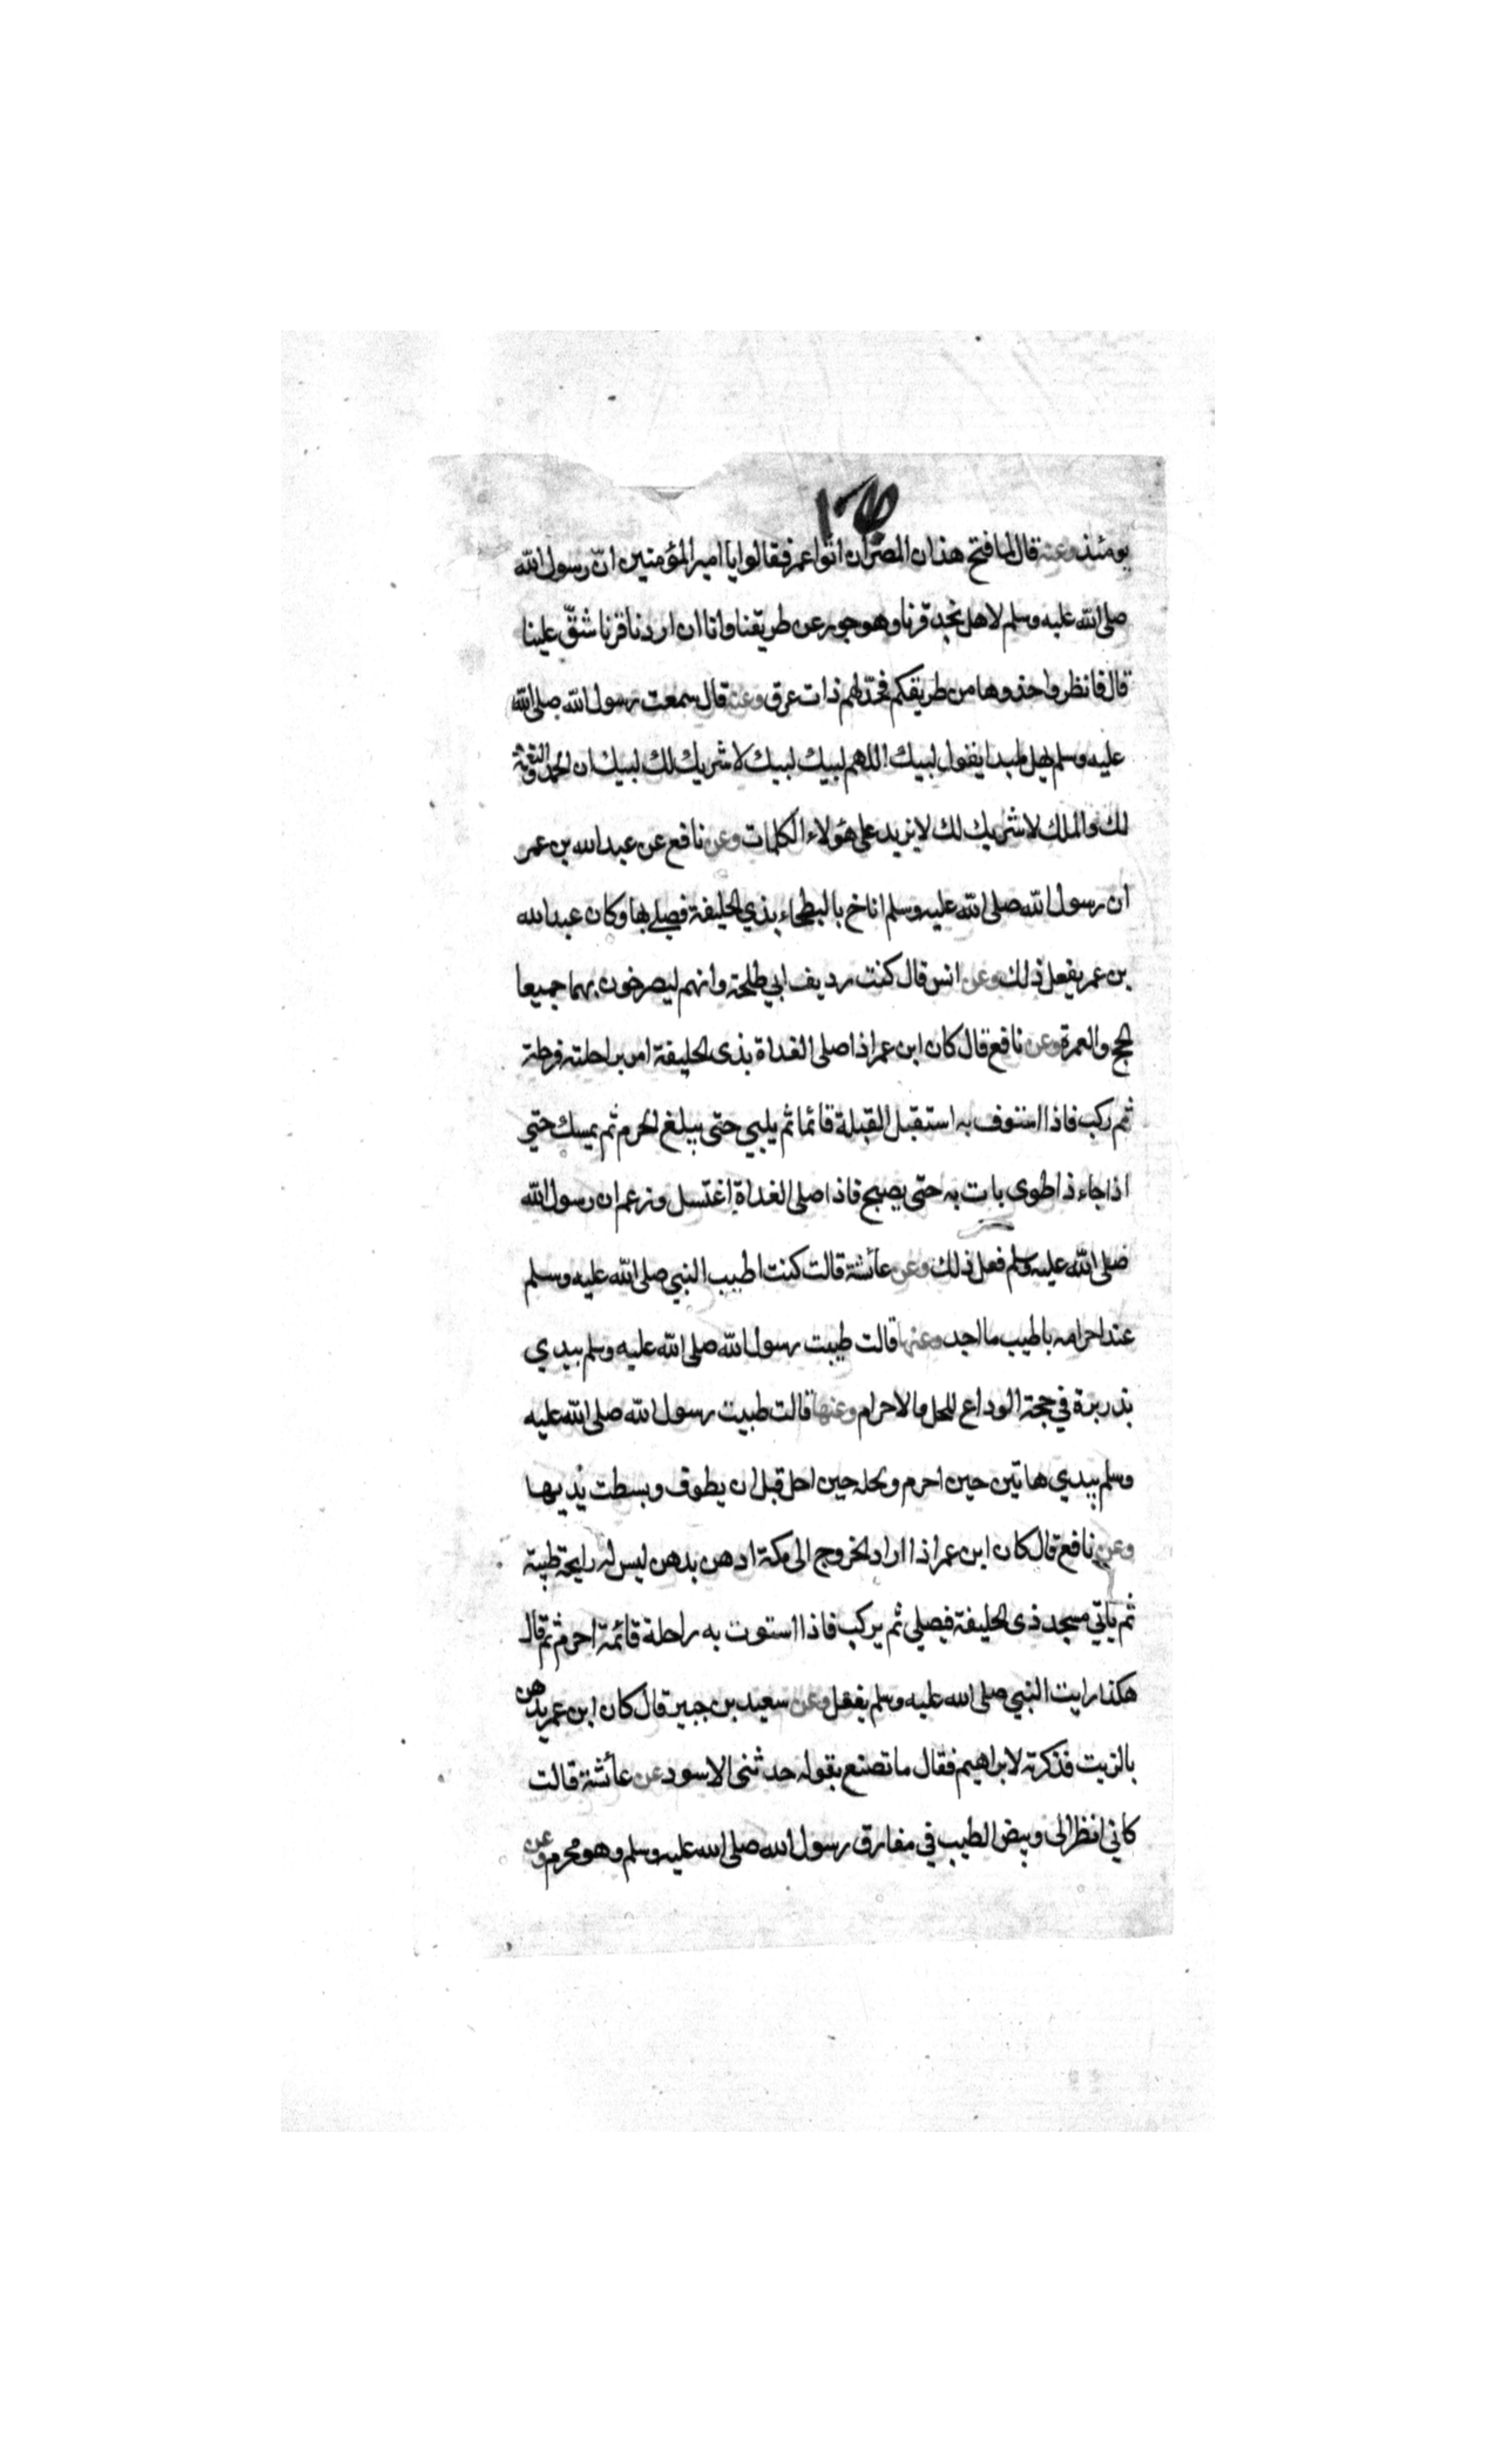 يومئذ وعنه قال لما فتح هذان المصران اتوا عمر فقالوا يا امير المؤمنين ان رسول الله
صلى الله عليه وسلم لاهل نجد قرنا وهو جور عن طريقنا وانا ان اردنا قرنا شقّ علينا
قال فانظروا حذوها من طريقكم فحدّ لهم ذات عرق وعنه قال سمعت رسول الله صلى الله
عليه وسلم يهل ملبدا يقول لبيك اللهم لبيك لبيك لا شريك لك لبيك ان الحمد والنعمة
لك والملك لا شريك لك لا يزيد على هؤلاء الكلمات وعن نافع عن عبد الله بن عمر
ان رسول الله صلى الله عليه وسلم اناخ بالبطحاء بذي الحليفة فصلى بها وكان عبد الله
بن عمر يفعل ذلك وعن انس قال كنت رديف ابي طلحة وانهم ليصرخون بهما جميعا
الحج والعمرة وعن نافع قال كان ابن عمر اذا صلى الغداة بذى الحليفة امر براحلته فرحلة
ثم ركب فاذا استوف به استقبل القبلة قائما ثم يلبي حتى يبلغ الحرم ثم يمسك حتي
اذا جاء ذا طوى بات به حتى يصبح فاذا صلى الغداة اغتسل وزعم ان رسول الله
صلى الله عليه وسلم فعل ذلك وعن عائشة قالت كنت اطيب النبي صلى الله عليه وسلم
عند احرامه باطيب ما اجد وعنها قالت طيبت رسول الله صلى الله عليه وسلم بيدي
بذريرة في حجة الوداع للحل والاحرام وعنها قالت طيبت رسول الله صلى الله عليه
وسلم بيدي هاتين حين احرم ولحله حين احل قبل ان يطوف وبسطت يديها
وعن نافع قال كان ابن عمر اذا اراد الخروج الى مكة ادهن بدهن ليس له رايحة طيبة
ثم ياتي مسجد ذى الحليفة فيصلي ثم يركب فاذا استوت به راحلة قائمة احرم ثم قال
هكذا رايت النبي صلى الله عليه وسلم يفعل وعن سعيد بن جبير قال كان ابن عمر يدهن
بالزيت فذكرته لابراهيم فقال ما تصنع بقوله حدثنى الاسود عن عائشة قالت
كاني انظر الى وبيض الطيب في مفارق رسول الله صلى الله عليه وسلم وهو محرم وعن